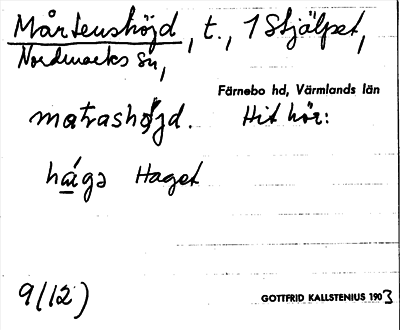 Mårtenshöjd, t., 1 Stjälpet,
Nordmarks sn,
Färnebo hd, Värmlands län
matrashöjd. Hit hör:
hága Haget
9(12)
GOTTFRID KALLSTENIUS 1903